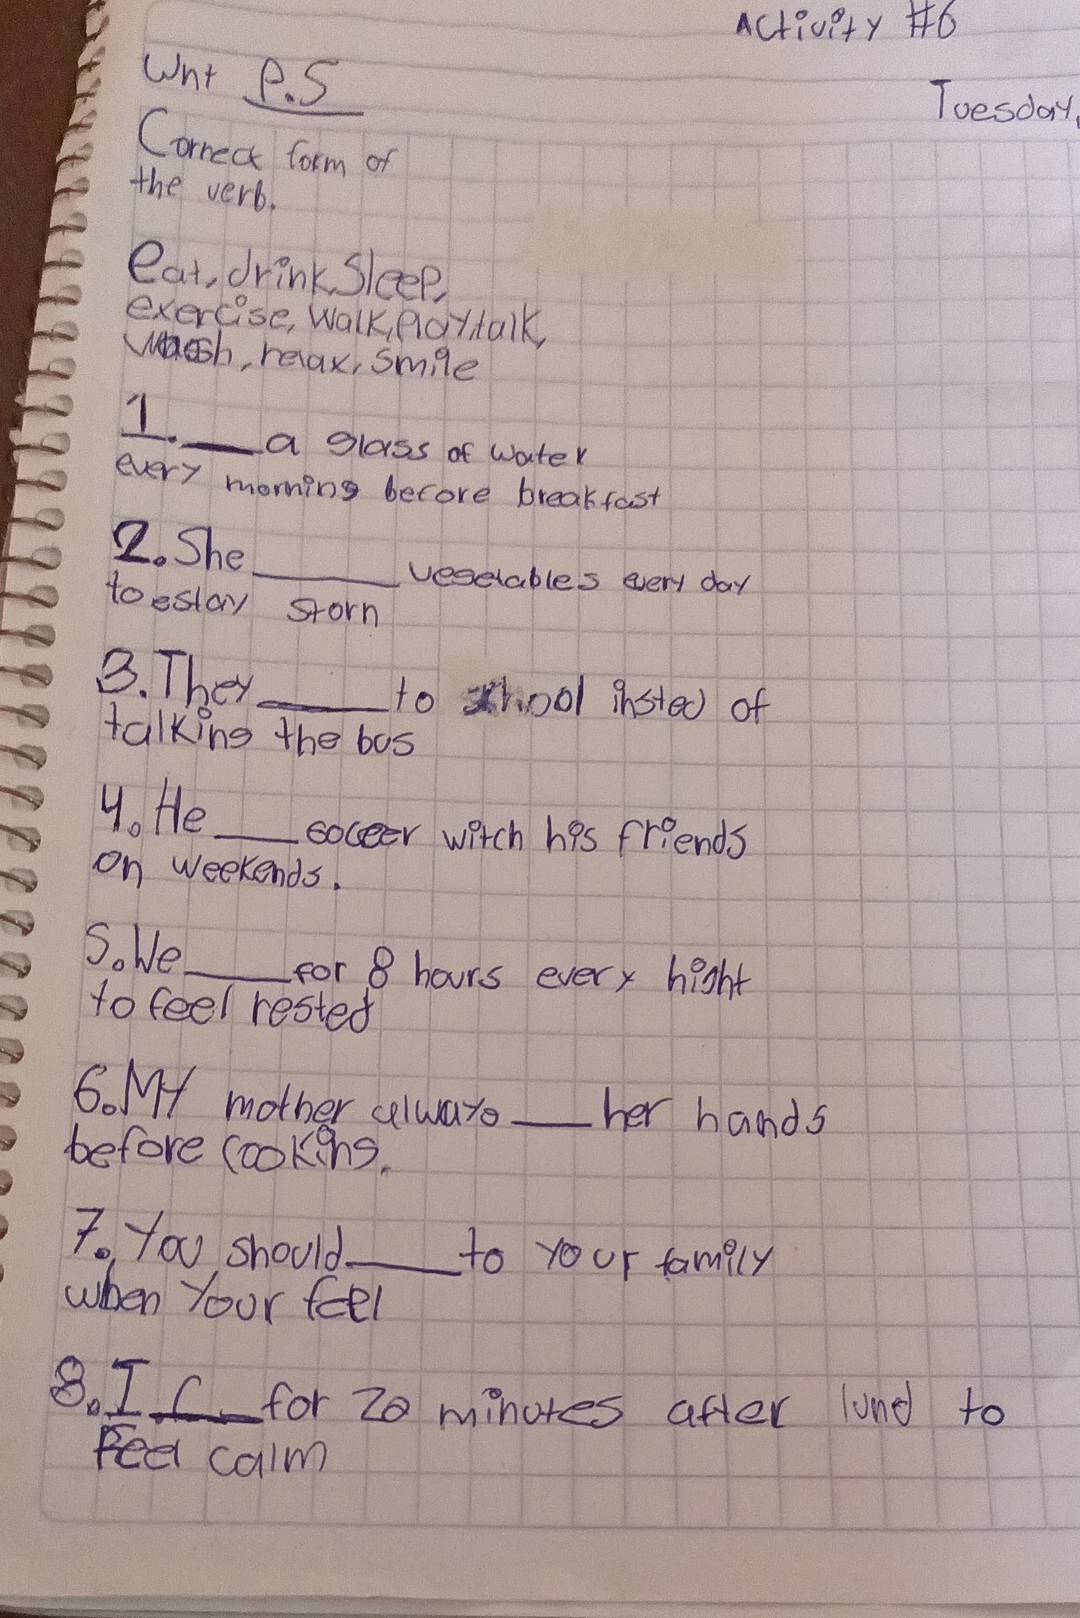 Activity #6
Wnt P.S
Tuesday,
Correct form of
the verb.
eat, drink, Sleep,
exercise, Walk, Play, talk,
wash, relax, Smile
1. ___ a glass of water
every morning before breakfast
2. She ___ vegetables every day
to eslay storn
3. They ___ to school insted of
talking the bus
4. He ___ soccer witch his friends
on weekends.
5. We ___ for 8 hours every hight
to feel rested
6. My mother always ___ her hands
before cooking.
7. You should ___ to your family
when Your feel
8. I ___ for 20 minutes after lund to
Feel calm